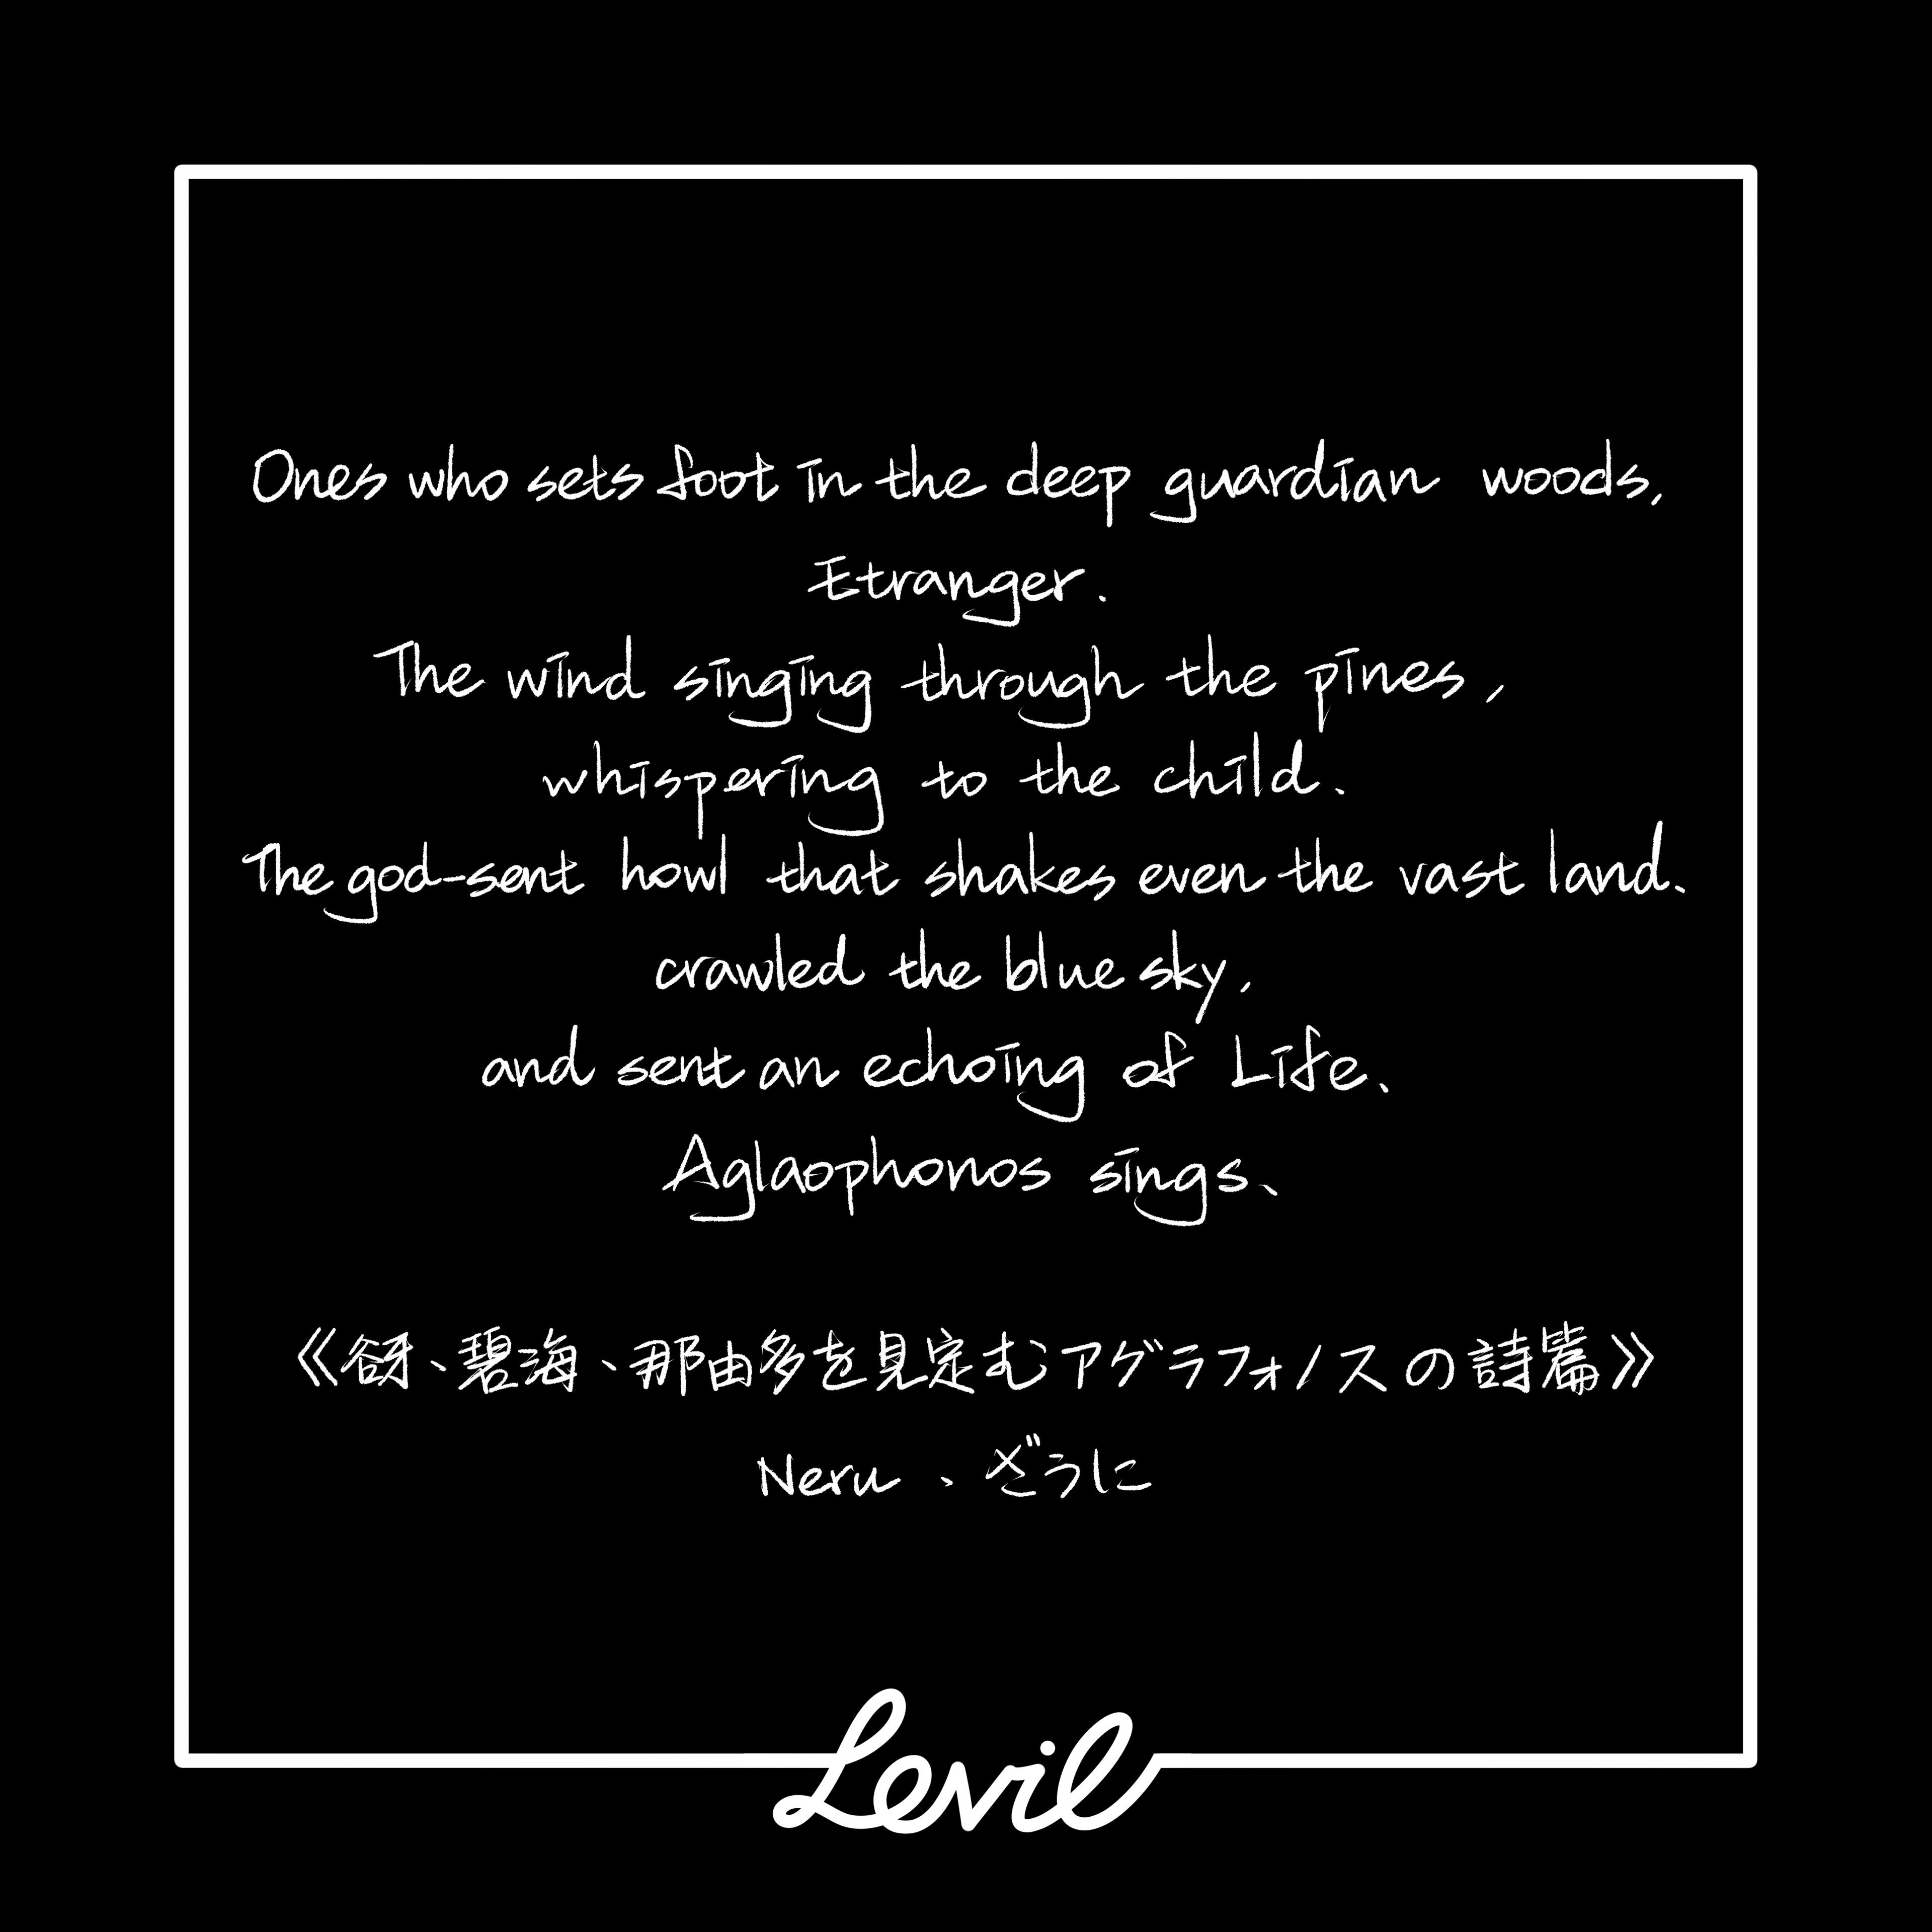 Ones who sets foot in the deep guardian woods,
Etranger.
The wind singing through the pines,
whispering to the child.
The god-sent howl that shakes even the vast land.
crawled the blue sky,
and sent an echoing of Life.
Aglaophonos sings.
《谺、碧海、那由多を見定むアグラフォノスの詩篇》
Neru、ざうに
Levil